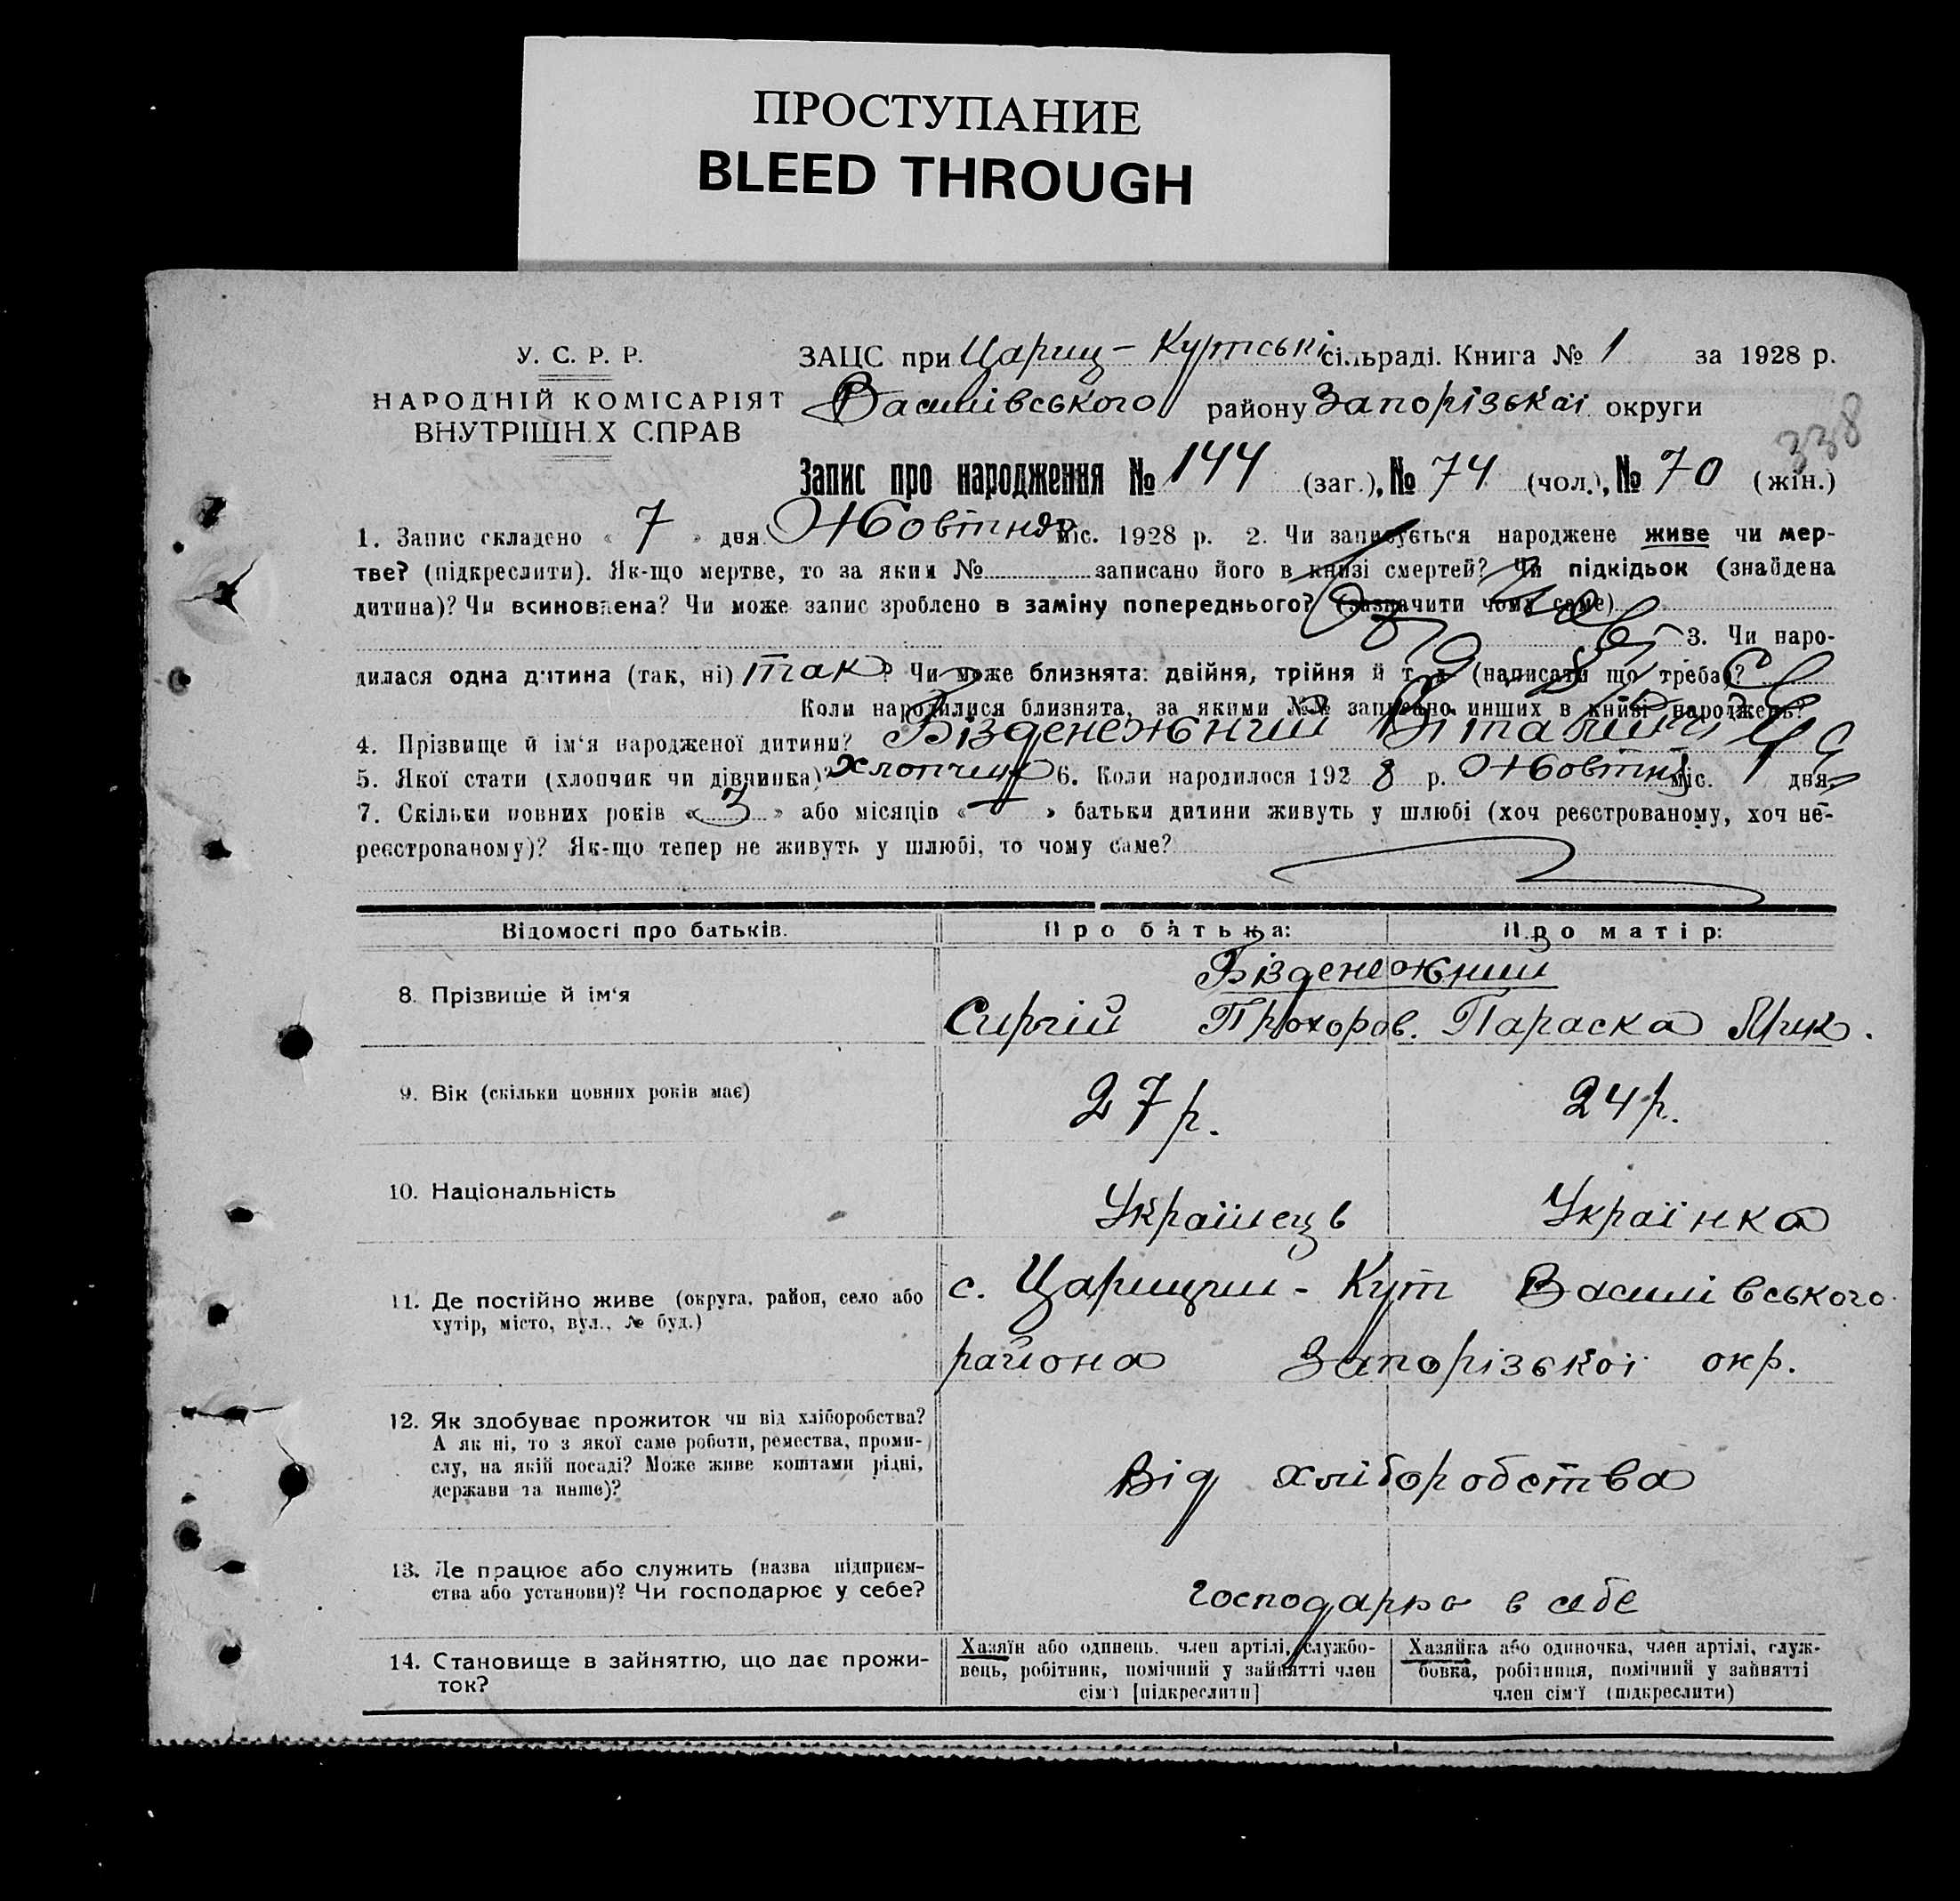 ПРОСТУПАНИЕ
BLEED THROUGH
У. С. Р. Р.
НАРОДНІЙ КОМІСАРІЯТ
ВНУТРІШН.Х СПРАВ
ЗАЦС при Цариц-Кутські сільраді. Книга № 1 за 1928 р.
Василівського району Запорізької округи
338
Запис про народження № 144 (заг.), № 74 (чол.), № 70 (жін.)
1. Запис складено « 7 » дня Жовтня міс. 1928 р. 2. Чи записується народжене живе чи мер-
тве? (підкреслити). Як-що мертве, то за яким № записано його в книзі смертей? Чи підкідьок (знайдена
дитина)? Чи всиновлена? Чи може запис зроблено в заміну попереднього? (зазначити чому саме)
3. Чи наро-
дилася одна дитина (так, ні) так? Чи може близнята: двійня, трійня й т. д. (написати що треба)?
Коли народилися близнята, за якими №№ записано инших в книзі народжень?
4. Прізвище й ім'я народженої дитини? Бізденежний Віталий
5. Якої стати (хлопчик чи дівчинка)? хлопчик 6. Коли народилося 1928 р. Жовтня міс. 1 дня.
7. Скільки повних років « 3 » або місяців « » батьки дитини живуть у шлюбі (хоч реєстрованому, хоч не-
реєстрованому)? Як-що тепер не живуть у шлюбі, то чому саме?
Відомості про батьків.
Про батька:
Про матір:
8. Прізвище й ім'я
Бізденежний
Сиргій Прохоров. Параска
9. Вік (скільки повних років має)
27 р.
24 р.
10. Національність
Українець
Українка
11. Де постійно живе (округа, район, село або
хутір, місто, вул., № буд.)
с. Царицин-Кут Василівського
района Запорізької окр.
12. Як здобуває прожиток чи від хліборобства?
А як ні, то з якої саме роботи, ремества, проми-
слу, на якій посаді? Може живе коштами рідні,
держави та инше)?
Від хліборобства
13. Де працює або служить (назва підприєм-
ства або установи)? Чи господарює у себе?
господарює в себе
14. Становище в зайняттю, що дає прожи-
ток?
Хазяїн або одинець, член артілі, службо-
вець, робітник, помічний у зайнятті член
сім'ї [підкреслити]
Хазяйка або одиночка, член артілі, служ-
бовка, робітниця, помічний у зайнятті
член сім'ї (підкреслити)